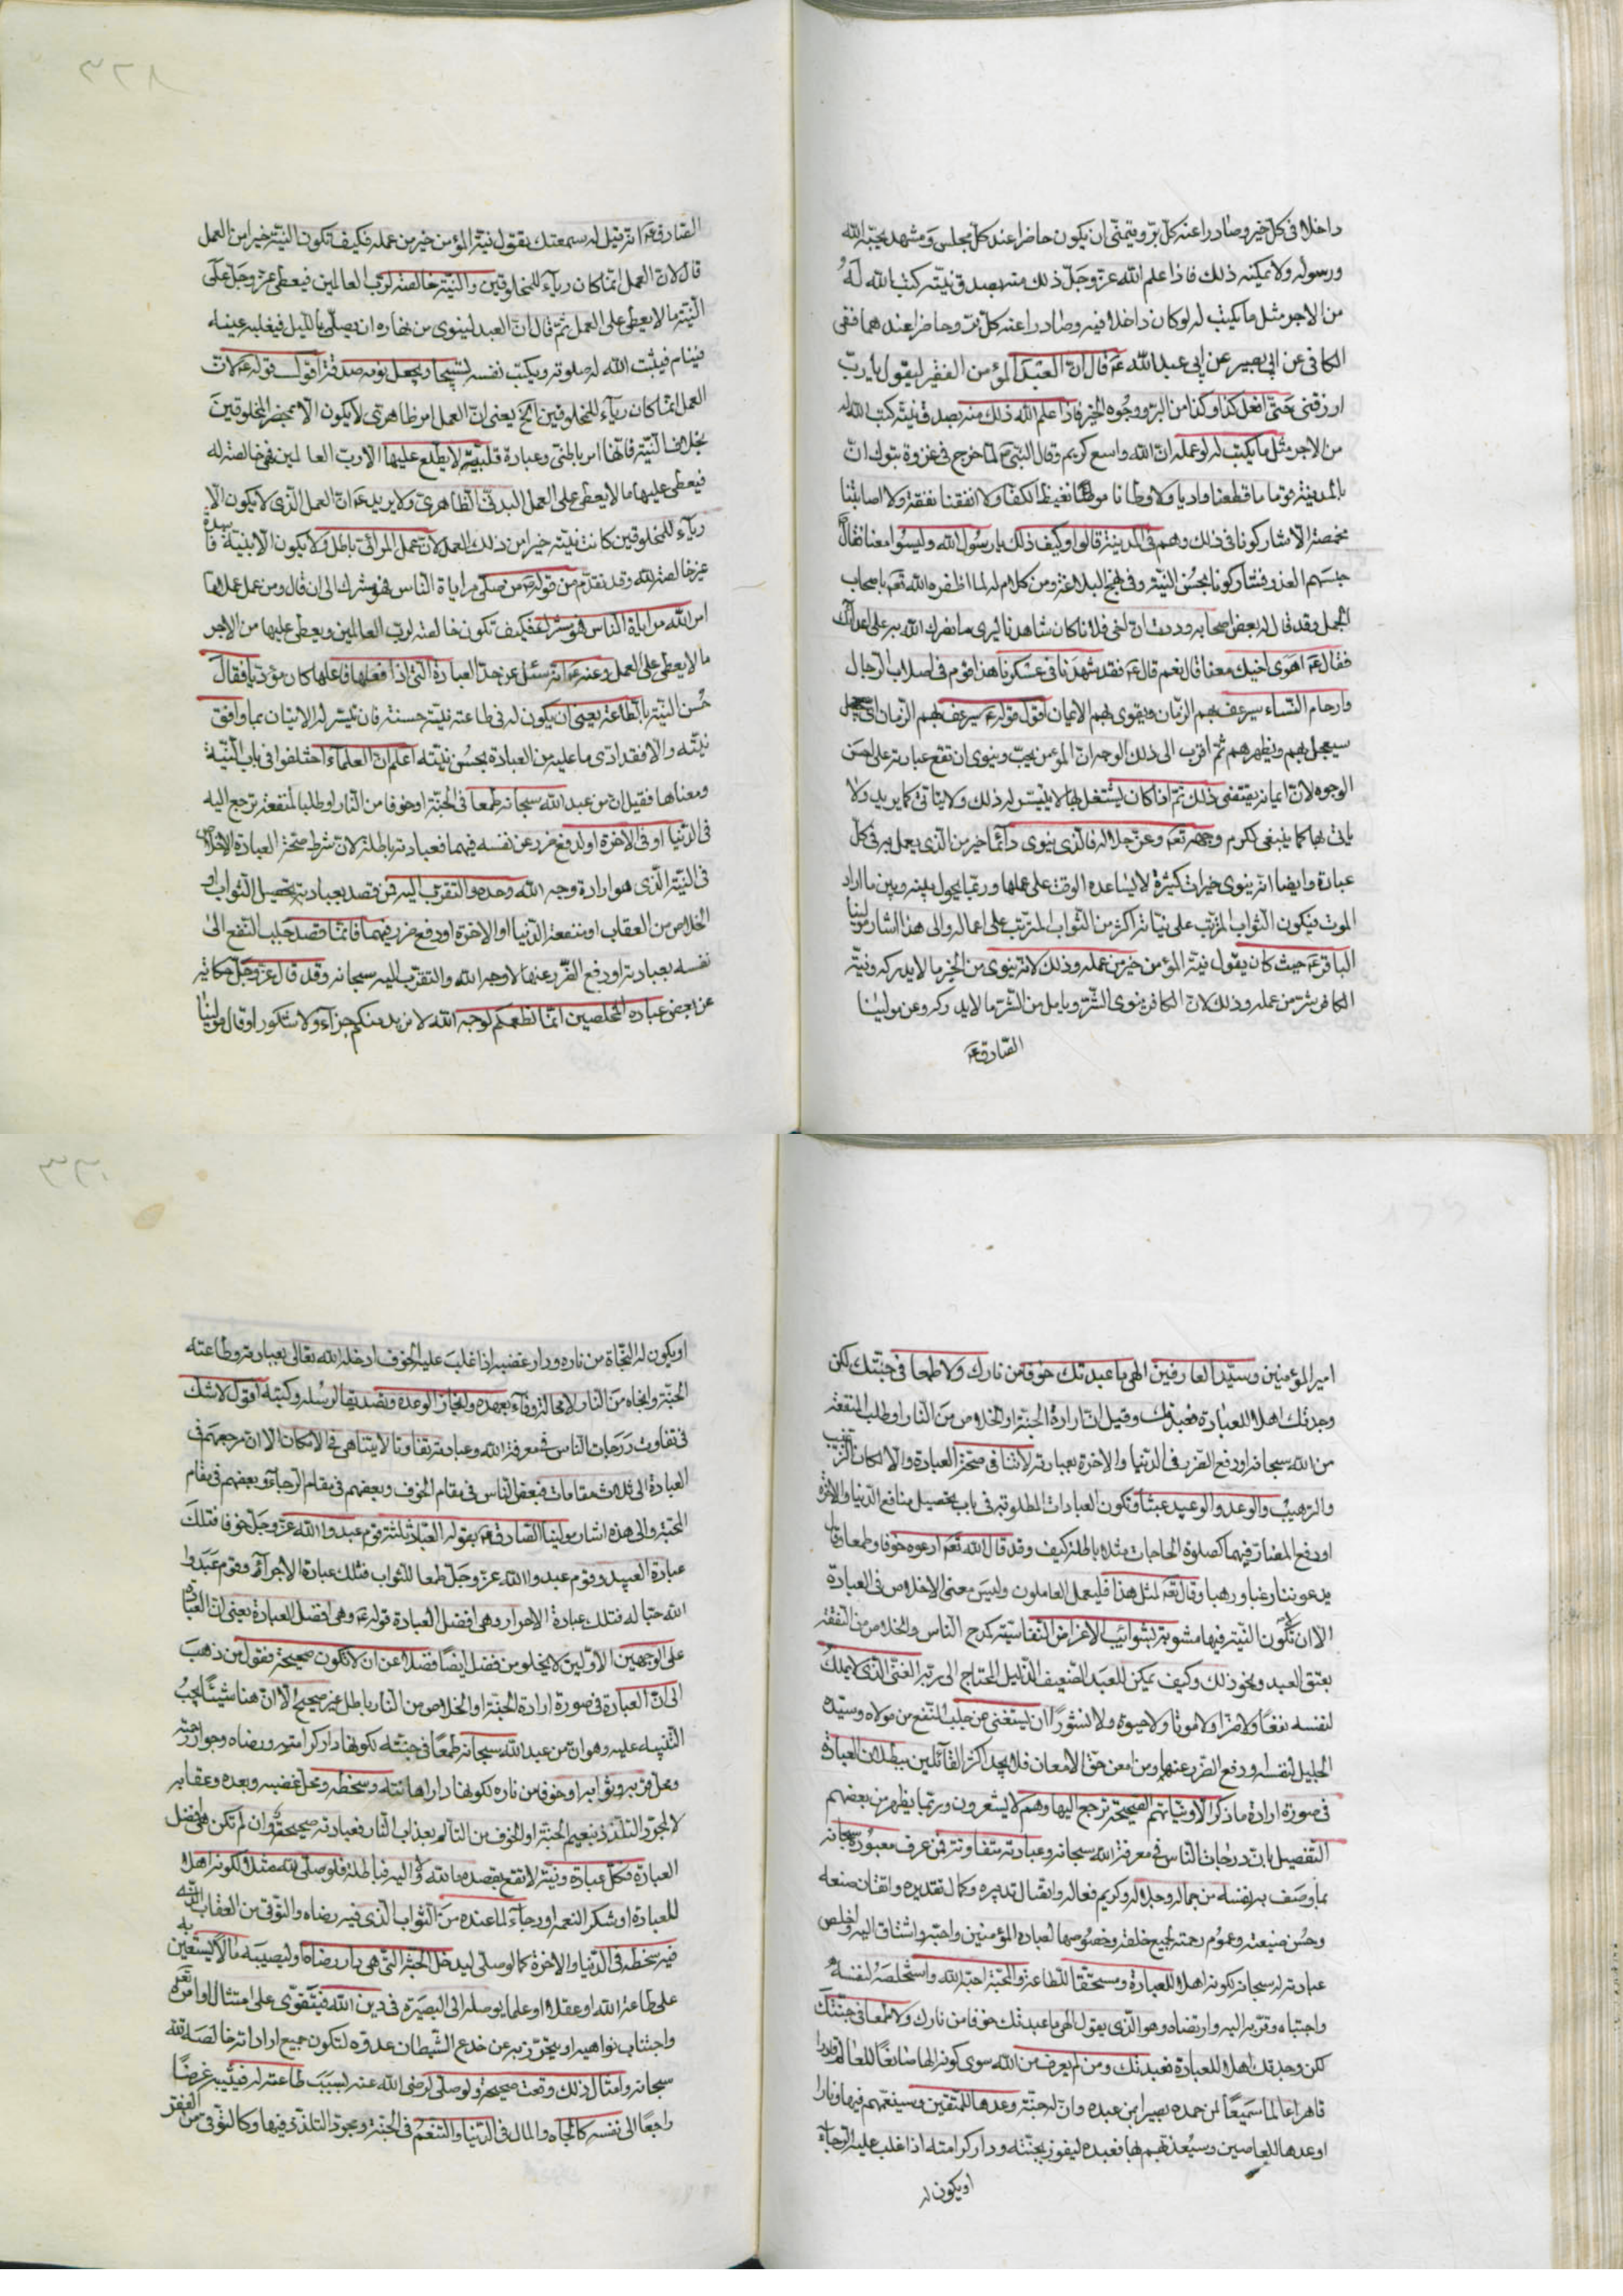 داخلا فى كلّ خير وصادرا عنه كلّ برّ ويتمنّى ان يكون حاضرا عند كلّ مجلس ومشهد يحبّه الله
ورسوله ولا يمكنه ذلك فاذا علم الله عزّ وجلّ ذلك منه بصدق نيّته كتب الله لهُ
من الاجر مثل ما يكتب له لو كان داخلا فيه وصادرا عنه كلّ برّ وحاضرا عندهما ففى
الكافى عن ابى بصير عن ابى عبد الله عَ قال انّ العبَد المؤمن الفقير ليقول يا ربّ
ارزقنى حتىّ افعل كذا وكذا من البرّ ووجُوه الخير فاذا علم الله ذلك منه بصدق نيّته كتب الله له
من الاجر مثل ما يكتب له لو عمله انّ الله واسع كريم وقال النبّى صَ لمّا خرج فى غزوة تبوك انّ
بالمدينة قوما ما قطعنا واديا ولا وطانا موطئا يغيظ الكفّار ولا انفقنا نفقة ولا اصابتنا
مخمصة الّا شاركونا فى ذلك وهم فى المدينة قالوا وكيف ذلك يا رسُول الله وليسُوا معنا فقال
حبسَهم العذر فشاركونا بحسُن النيّة وفى نهج البلاغة ومن كلام له لما اظفره الله تعَ باصحاب
الجمل وقد قال له بعض اصحابه وددت انّ اخى فلانا كان شاهدنا ليرى ما نصرك الله به على اعدائك
فقال عَ اهوى اخيك معنا قال نعم قال عَ فقد شهدَنا فى عسْكرنا هذا قوم فى اصلاب الرّجال
وارحام النّساء سيرعف بهم الزمّان ويقوى بهم الايمان اقول قوله عَ سيرعف بهم الزّمان اى
سيعجل بهم ويظهرهم ثمّ اقرب الى ذلك الوجه انّ المؤمن يحبّ وينوى ان تقع عباداته على احسن
الوجوه لانّ ايمانه يقتضى ذلك ثمّ اذا كان يشتغل بها لا يتيسّر له ذلك ولا يتاتّى كما يريد ولا
ياتى بها كما ينبغى لكرم وجهه تعَ وعزّ جلاله فالّذى ينوى دائما خير من الّذى يعمل به فى كلّ
عبادة وايضا انّه ينوى خيرات كثيرة لا يساعده الوقت على عملها وربّما يحول بينه وبين ما اراد
الموت فيكون الثّواب المرتّب على نيّاته اكثر من الثّواب المترتّب على اعماله والى هذا اشار مولينا
الباقر عَ حيث كان يقول نيّة المؤمن خير من عمله وذلك لانّه ينوى من الخير ما لا يدركه ونيّة
الكافر شرّ من عمله وذلك لانّ الكافر ينوى الشّرّ ويامل من الشّرّ ما لا يدركه وعن مولينا
الصّادق عَ
الصّادق عَ انّه قيل له سمعتك تقول نيّة المؤمن خير من عمله فكيف تكون النيّة خيرا من العمل
قال لانّ العمل انّما كان رياء للمخلوقين والنيّة خالصة لربّ العالمين فيعطى عزّ وجلّ على
النّية ما لا يعطى على العمل ثمّ قال انّ العبد لينوى من نهاره ان يصلّى بالليل فيغلبه عينه
فينام فيثبت الله له صلوته ويكتب نفسه تسبيحا ويجعل نومه صدقة اقول قوله عَ لانّ
العمل انّما كان رياء للمخلوقين الخ يعنى انّ العمل امر ظاهرى لا يكون الّا بمحضر المخلوقين
بخلاف النيّة فانّها امر باطنى وعبادة قلبيّة لا يطّلع عليها الّا ربّ العالمين فهى خالصة له
فيعطى عليها ما لا يعطى على العمل البدنىّ الظاهرىّ ولا يريد عَ انّ العمل الذّى لا يكون الّا
رياء للمخلوقين كانت نيّته خيرا من ذلك العمل لانّ عمل المرائى باطل ولا يكون الّا بنيّة فاسدة
غير خالصة لله وقد تقدّم من قوله صَ من صلّى مراياة النّاس فهو مشرك الى ان قال ومن عمل عملا ممّا
امر الله مراياة النّاس فهو مشرك فكيف تكون خالصة لربّ العالمين ويعطى عليها من الاجر
ما لا يعطى على العمل وعنه عَ انّه سئل عن حدّ العبادة التّى اذا فعلها فاعلها كان مؤدّيا فقال
حُسن النيّة بالطّاعة يعنى ان يكون له فى طاعته نيّة حسنة فان تيسّر له الاتيان بما وافق
نيّته والّا فقد ادّى ما عليه من العبادة بحسُن نيّته اعلم انّ العلماء اختلفوا فى باب النّيّة
ومعناها فقيل انّ من عبد الله سبحانه طمعا فى الجنّة او خوفا من النّار او طلبا لمنفعة ترجع اليه
فى الدّنيا او فى الاخرة او لدفع ضرر عن نفسه فيهما فعبادته باطلة لانّ شرط صحّة العبادة الاخلاص
فى النيّة الذّى هو ارادة وجه الله وحده والتقرّب اليه فمن قصد بعبادته تحصيل الثّواب او
الخلاص من العقاب او منفعة الدّنيا او الاخرة او دفع ضرر فيهما فانّما قصد جلب النّفع الى
نفسه بعبادته او دفع الضّرر عنها لا وجه الله والتقرّب اليه سبحانه وقد قال عزّ وجلّ حكاية
عن بعض عباده المخلصين انّما نطعمكم لوجه الله لا نريد منكم جزاء ولا شكورا وقال مولينا
امير المؤمنين وسيّد العارفين الهى ما عبدتك خوفا من نارك ولا طمعا فى جنّتك لكن
وجدتك اهلا للعبادة فعبدتك وقيل انّ ارادة الجنّة او الخلاص من النّار او طلب المنفعة
من الله سبحانه او دفع الضّرر فى الدّنيا والاخرة بعبادته لا تنافى صحّة العبادة والّا لكان الترغيب
والترهيب والوعد والوعيد عبثا وتكون العبادات المطلوبة فى باب تحصيل منافع الدّنيا والاخرة
او دفع المضارّ فيهما كصلوة الحاجات مثلا باطلة كيف وقد قال الله تعَ ادعوه خوفا وطمعا وقال
يدعوننا رغبا ورهبا وقال تعَ لمثل هذا فليعمل العاملون وليسَ معنى الاخلاص فى العبادة
الّا ان لا تكون النيّة فيها مشوبة بشوائب الاغراض النّفاسيّة كمدح النّاس والخلاص من النّفقة
بعتق العبد ونحو ذلك وكيف يمكن للعبد الضّعيف الذّليل المحتاج الى ربّه الغنىّ الذّى لا يملك
لنفسه نفعًا ولا ضرّا ولا موتا ولا حيوة ولا نشورًا ان يستغنى عن جلب النّفع من مولاه وسيّده
الجليل لنفسه او دفع الضّرر عنها ومن امعن حقّ الامعان فلا يجد اكثر القائلين ببطلان العبادة
فى صورة ارادة ما ذكر الّا ونيّاتهم الصّحيحة ترجع اليها وهم لا يشعرون وربّما يظهر من بعضهم
التّفصيل بانّ درجات النّاس فى معرفة الله سبحانه وعبادته متفاوتة فمن عرف معبُوده سبحانه
بما وصَف به نفسه من جماله وجلاله وكريم فعاله واتصال تدبيره وكمال تقديره واتقان صنعه
وحُسن صنيعته وعموُم رحمته لجميع خلقه وخصُوصها لعباده المؤمنين واحبّه واشتاق اليه واخلص
عبادته له سبحانه لكونه اهلا للعبادة ومستحقّا للطّاعة والمحبّة احبّه الله واستخلصَهُ لنفسهُ
واجتباه وقرّبه اليه وارتضاه وهو الذّى يقول الهى ما عبدتك خوفا من نارك ولا طمعا فى جنّتك
لكن وجدتك اهلا للعبادة فعبدتك ومن لم يعرف من الله سوى كونه الها صانعًا للعالم قادرا
قاهرا عالما سَميعًا لمن حمده بصيرا بمن عبده وانّ له جنّة وعدها للمتّقين وسينعّمهم فيها ونارا
اوعدها للعاصين وسيُعذّبهم بها فعبده ليفوز بجنّته ودار كرامته اذا غلب عليه الرّجاء
او يكون له
او يكون له النّجاة من ناره ودار غضبه اذا غلبَ عليه الخوف ادخله الله تعالى بعبادته وطاعته
الجنّة وانجاه من النّار لا محالة وفاء بعهده وانجاز الوعده وتصديقا لرسُله وكتبه اقول لا شك
فى تفاوت درَجات النّاس فى معرفة الله وعبادته تفاوتا لا يتناهى فى الامكان الّا انّ مرجعهم فى
العبادة الى ثلاث مقامات فبعض النّاس فى مقام الخوف وبعضهم فى مقام الرّجاء وبعضهم فى مقام
المحبّة والى هذه اشار مولينا الصّادق عَ بقوله العبّاد ثلثة قوم عبدوا الله عزّ وجلّ خوفا فتلك
عبادة العبيد وقوم عبدوا الله عزّ وجلّ طمعا للثّواب فتلك عبادة الاجراء وقوم عبَدوا
الله حبّا له فتلك عبادة الاحرار وهى افضل العبادة قوله عَ وهى افضل العبادة يعنى انّ العبادة
على الوجهين الاوّلين لا يخلو من فضل ايضًا فضلا عن ان لا تكون صحيحة فقول من ذهب
الى انّ العبادة فى صورة ارادة الجنّة او الخلاص من النّار باطل غير صحيح الّا انّ هنا شيئًا يجبُ
التّنبيه عليه وهو انّ من عبد الله سبحانه طمعًا فى جنّته لكونها دار كرامته ورضاه وجوار احبّته
ومحلّ قربه وثوابه او خوفا من ناره لكونها دار اهانته وسخطه ومحلّ غضبه وبعده وعقابه
لا لمجرّد التلذّذ بنعيم الجنّة او الخوف من التّالّم بعذاب النّار فعبادته صحيحة وان لم تكن هى افضل
العبادة فكلّ عبادة ونيّة لا تقع بقصد ما لله فى اليه فباطلة فلو صلّى لله مثلا لكونه اهلا
للعبادة او شكر النعمه او رجاء لما عنده من الثّواب الذّى فيه رضاه والتوقّى من العقاب الّذى
فيه سخطه فى الدّنيا والاخرة كما لو صلّى ليدخل الجنّة التّى هى دار رضاه او ليصيبه مالا يستعين به
على طاعة الله او عقلا او علما يوصله الى البصيَرة فى دين الله فيتقوّى على امتثال اوامره تعَ
واجتناب نواهيه او يتحرّز به عن خدع الشّيطان عدوّه لتكون جميع اراداته خالصَة لله
سبحانه وامثال ذلك وقعت صحيحة ولو صلّى لرضى الله عنه بسَبَب طاعته له فيثيبه غرضًا
راجعًا الى نفسه كالجاه والمال فى الدّنيا والتنعّم فى الجنّة ومجرّد التلذّذ فيها وكالتوقّى من الفقر